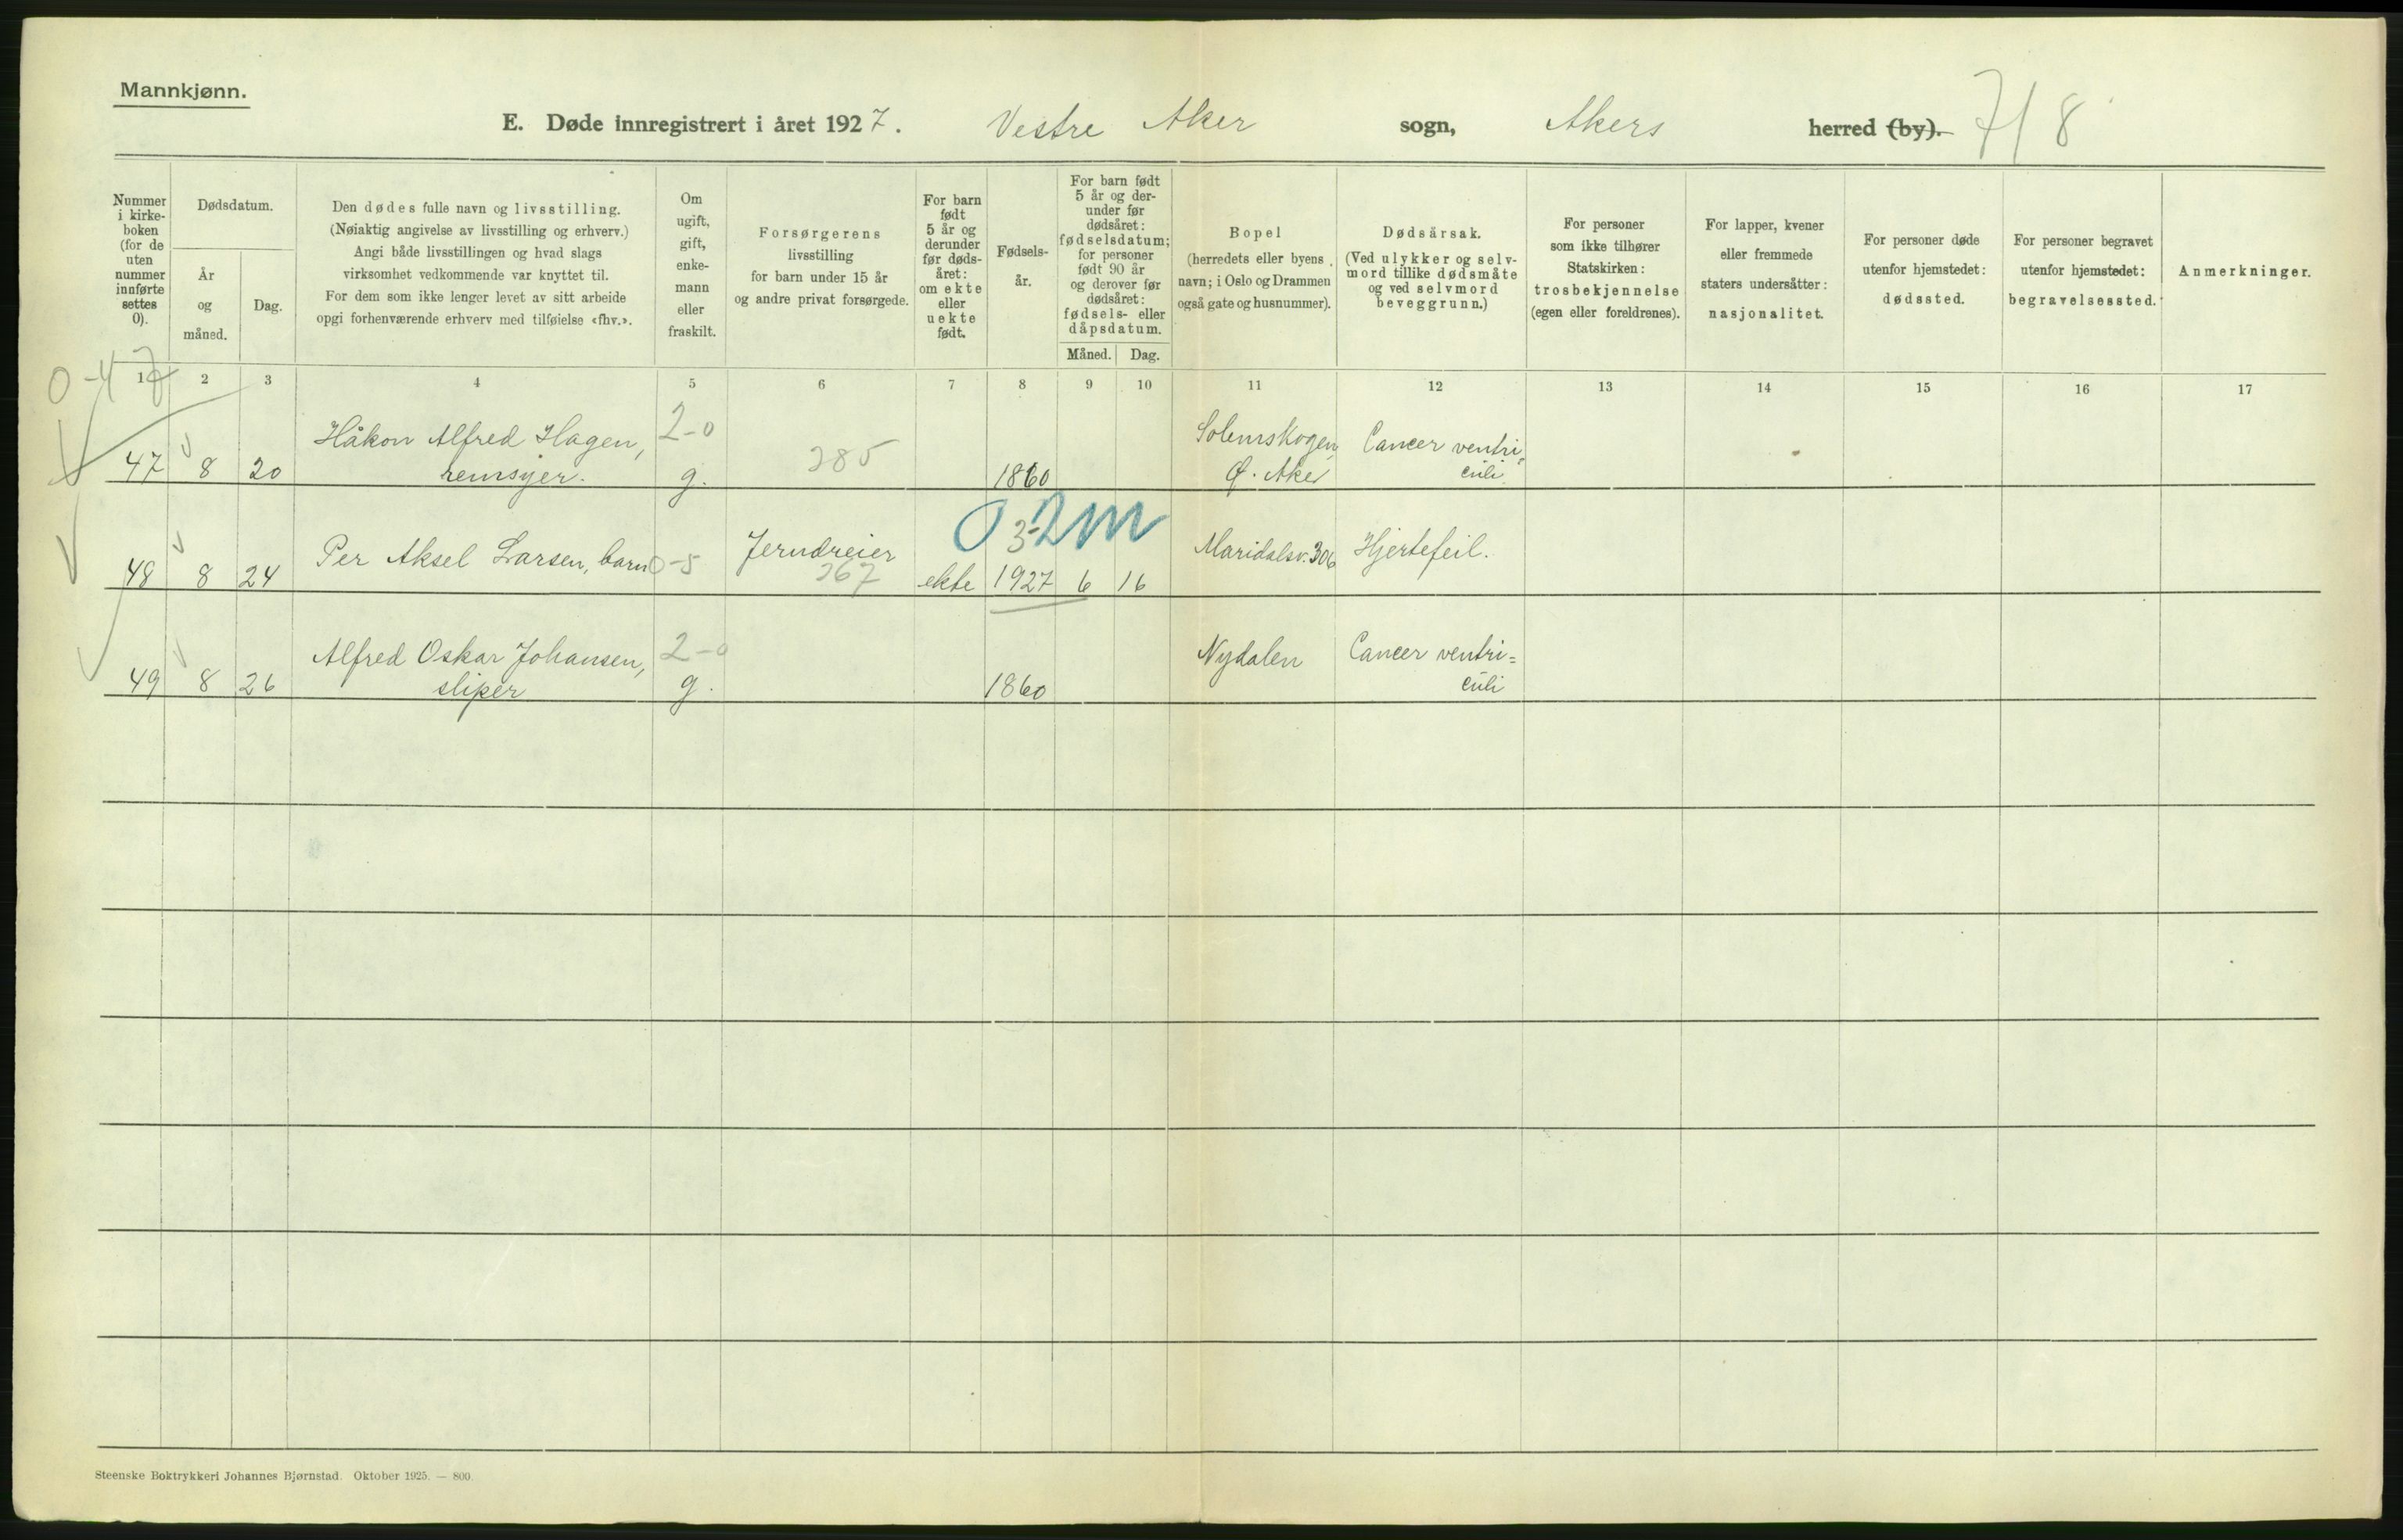 Mannkjønn.
E. Døde innregistrert i året 1927. Vestre Aker sogn, Akers herred (by). 7/8
Nummer i kirke- boken (for de uten nummer innførte settes 0).
Dødsdatum.
År og måned.
Dag.
Den dødes fulle navn og livsstilling.
(Nøiaktig angivelse av livsstilling og erhverv.)
Angi både livsstillingen og hvad slags
virksomhet vedkommende var knyttet til.
For dem som ikke lenger levet av sitt arbeide
opgi forhenværende erhverv med tilføielse «fhv.».
Om ugift, gift, enke- mann eller fraskilt.
Forsørgerens
livsstilling
for barn under 15 år
og andre privat forsørgede.
For barn født 5 år og derunder før døds- året: om ekte eller uekte født.
Fødsels- år.
For barn født 5 år og der- under før dødsåret: fødselsdatum; for personer født 90 år og derover før dødsåret: fødsels- eller dåpsdatum.
Måned. Dag.
Bopel
(herredets eller byens
navn; i Oslo og Drammen
også gate og husnummer).
Dødsårsak.
(Ved ulykker og selv-
mord tillike dødsmåte
og ved selvmord
beveggrunn.)
For personer
som ikke tilhører
Statskirken:
trosbekjennelse
(egen eller foreldrenes).
For lapper, kvener
eller fremmede
staters undersåtter:
nasjonalitet.
For personer døde
utenfor hjemstedet:
dødssted.
For personer begravet
utenfor hjemstedet:
begravelsessted.
Anmerkninger.
1 2 3 4 5 6 7 8 9 10 11 12 13 14 15 16 17
0-4
Håkon Alfred Hagen, 2-0 Solemskogen, Cancer ventri-
47 8 20 remsyer. g. 285 1860 Ø. Aker culi
0 3-2m
Per Aksel Larsen, barn 0-5 Jerndreier Maridalsv. 306 Hjertefeil.
48 8 24 267 ekte 1927 6 16
Alfred Oskar Johansen, 2-0 Nydalen Cancer ventri=
49 8 26 sliper g. 1860 culi
Steenske Boktrykkeri Johannes Bjørnstad. Oktober 1925. — 800.